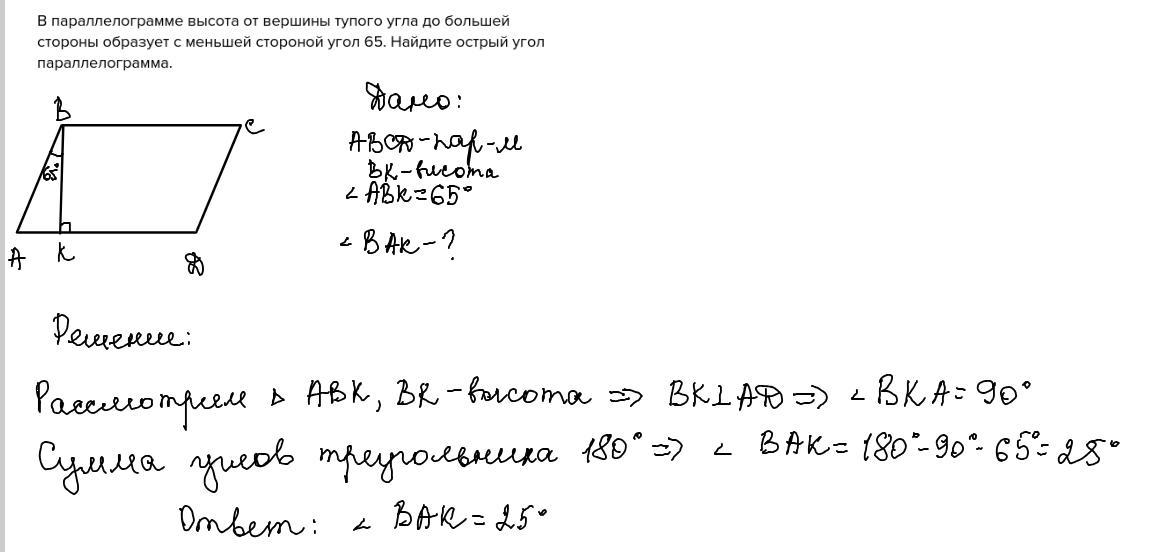 В параллелограмме высота от вершины тупого угла до большей
стороны образует с меньшей стороной угол 65. Найдите острый угол
параллелограмма.
Дано:
ABCD-пар-м
BK-высота
∠ABK=65°
∠BAK-?
B
C
65°
A
K
D
Решение:
Рассмотрим △ ABK, BK-высота => BK⊥AD => ∠BKA=90°
Сумма углов треугольника 180° => ∠ BAK=180°-90°-65°=25°
Ответ: ∠ BAK=25°